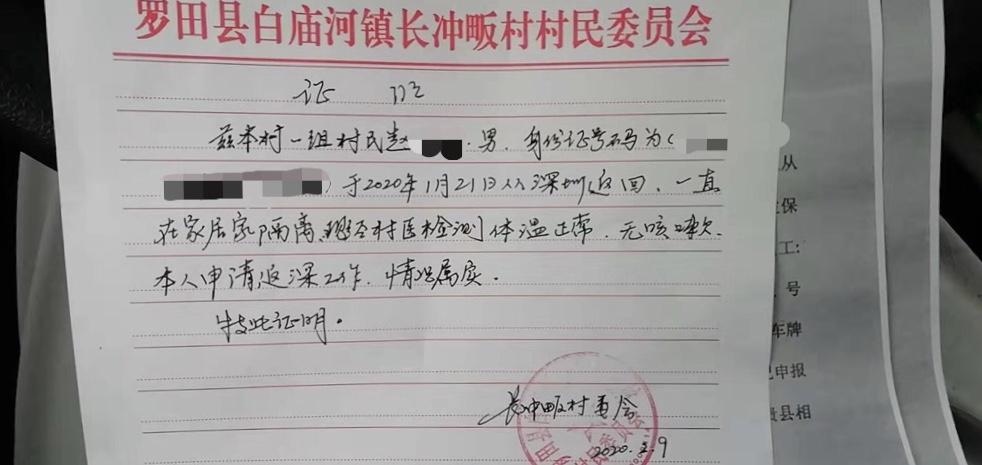 罗田县白庙河镇长冲畈村村民委员会
证 明
兹本村一组村民赵 男，身份证号码为（
）于2020年1月21日从深圳返回，一直
在家居家隔离，经本村医检测体温正常，无咳嗽。
本人申请返深工作，情况属实。
特此证明。
长冲畈村委会
2020.2.9
从
保
工:
号
车牌
申报
县相